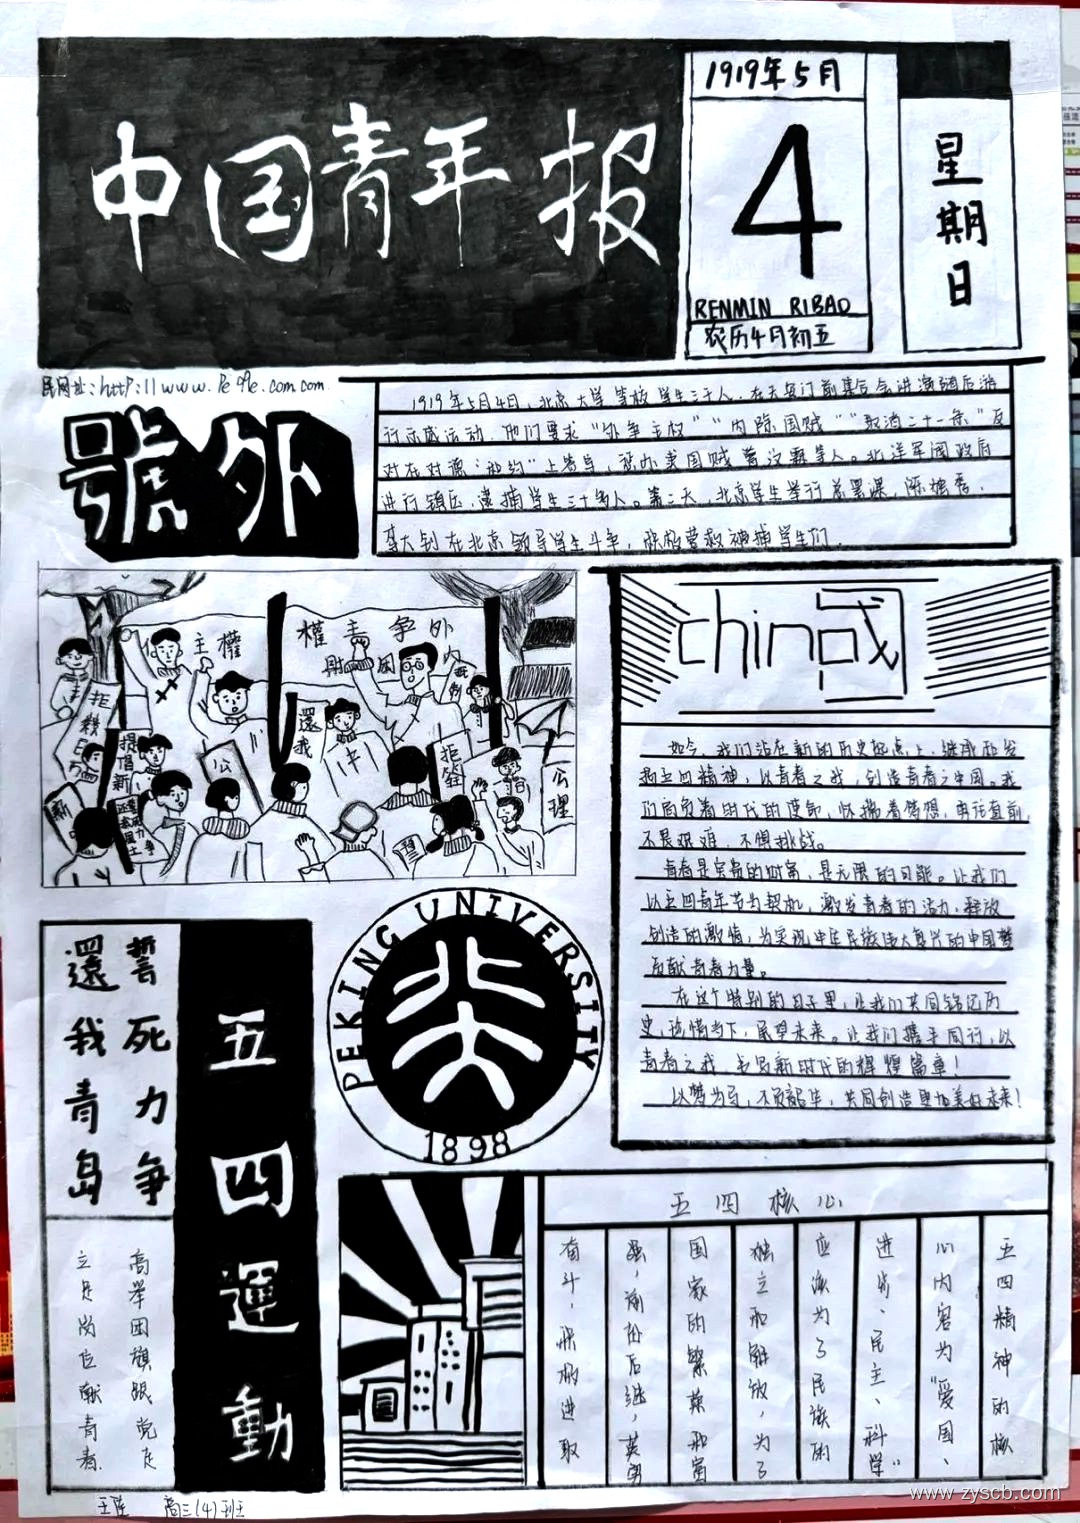 中国青年报
1919年5月
4
RENMIN RIBAO
农历4月初五
星期日
民网址:http://www.People.com.com
號外
1919年5月4日,北京大学等校学生三千人,在天安门前集合会讲演随后游
行示威运动,他们要求"外争主权""内除国贼""取消二十一条"反
对在对德"和约"上签字,惩办卖国贼曹汝霖等人。北洋军阀政府
进行镇压,逮捕学生三十多人。第二天,北京学生举行总罢课,陈独秀、
李大钊在北京领导学生斗争,积极营救被捕学生们.
主權
權主争外
國
内
拒
救
日
提倡新
還我
公
拒簽
公理
新
中
china國
如今,我们站在新的历史起点上,继承和发
扬五四精神,以青春之我,创造青春之中国。我
们肩负着时代的使命,怀揣着梦想,勇往直前,
不畏艰难,不惧挑战。
青春是宝贵的财富,是无限的可能。让我们
以五四青年节为契机,激发青春的活力,释放
创造的激情,为实现中华民族伟大复兴的中国梦
贡献青春力量。
在这个特别的日子里,让我们共同铭记历
史,珍惜当下,展望未来。让我们携手同行,以
青春之我,书写新时代的辉煌篇章!
以梦为马,不负韶华,共同创造更加美好未来!
PEKING UNIVERSITY
北大
1898
誓死力争
還我青岛
五四運動
高举团旗跟党走
立足岗位献青春
五四核心
五四精神的核
心内容为"爱国、
进步、民主、科学"
应派为了民族的
独立和解放,为了
国家的繁荣和富
强,前仆后继,英勇
奋斗,积极进取
高三(4)班
www.zyscb.com